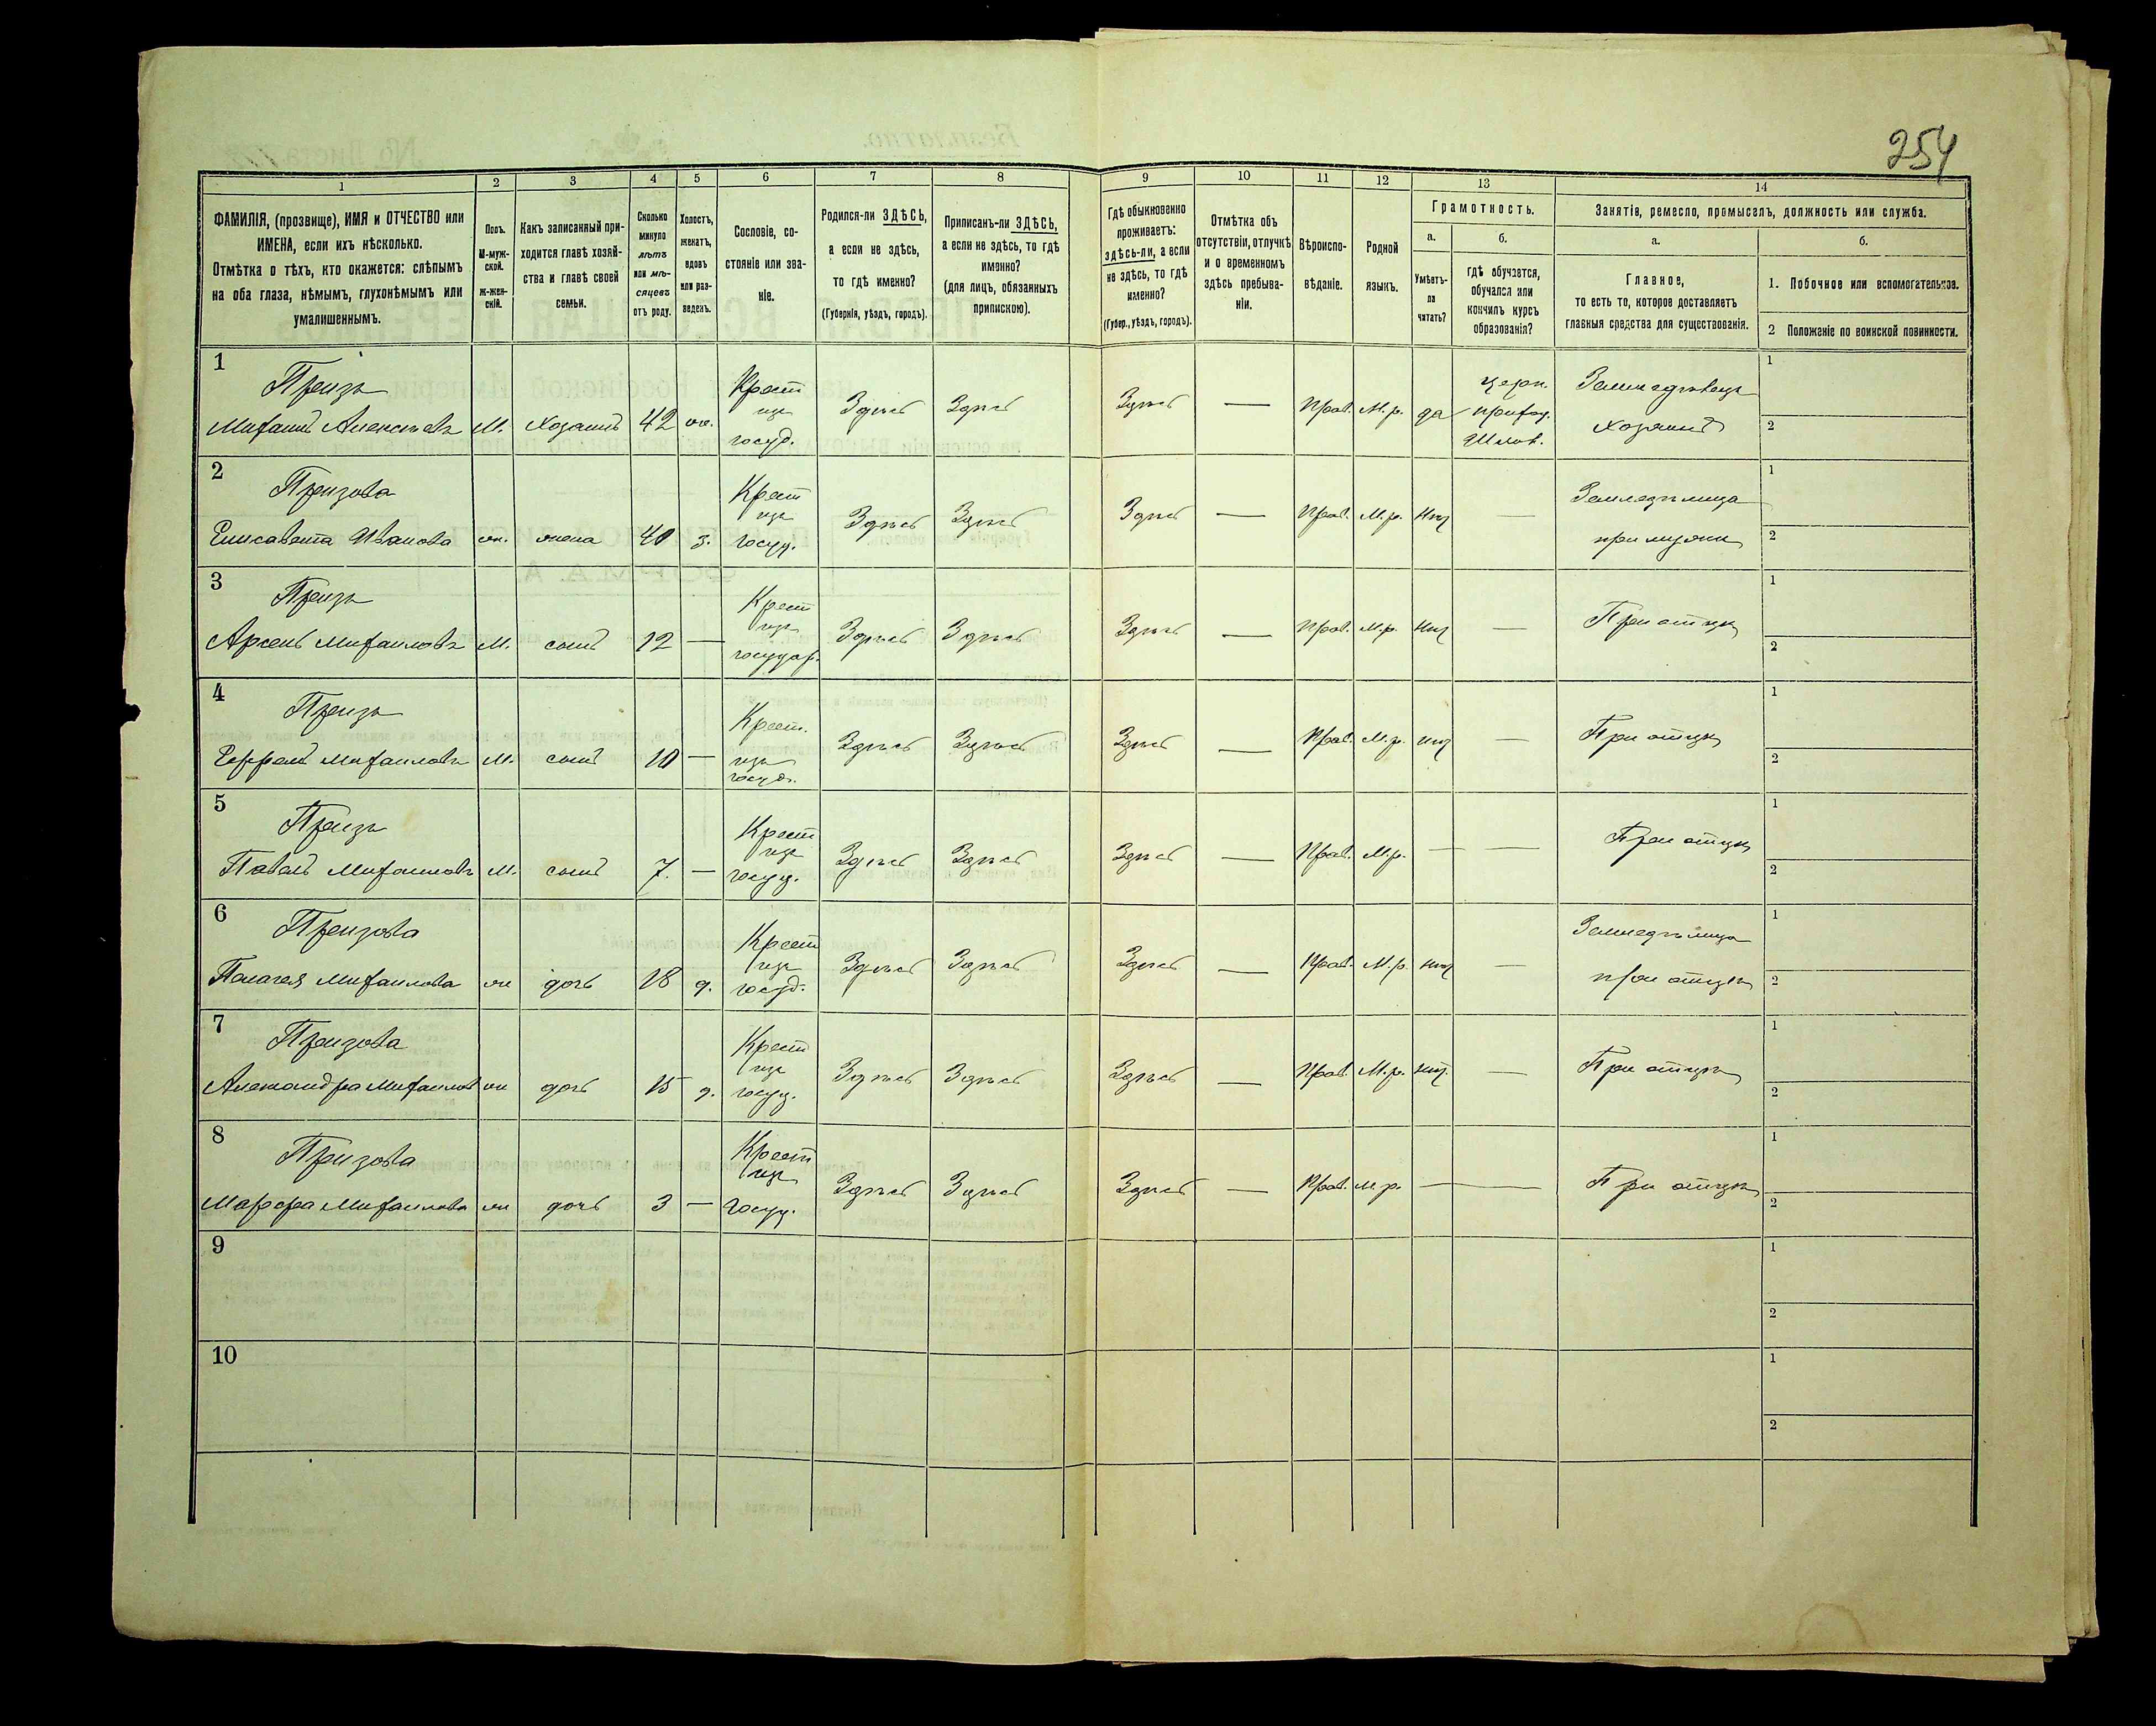 254
1
2
3
4
5
6
7
8
9
10
11
12
13
14
ФАМИЛІЯ, (прозвище), ИМЯ и ОТЧЕСТВО или
ИМЕНА, если ихъ нѣсколько.
Отмѣтка о тѣхъ, кто окажется: слѣпымъ
на оба глаза, нѣмымъ, глухонѣмымъ или
умалишеннымъ.
Полъ.
М-муж-
ской.
Ж-жен-
скій.
Какъ записанный при-
ходится главѣ хозяй-
ства и главѣ своей
семьи.
Сколько
минуло
лѣтъ
или мѣ-
сяцевъ
отъ роду.
Холостъ,
женатъ,
вдовъ
или раз-
веденъ.
Сословіе, со-
стояніе или зва-
ніе.
Родился-ли ЗДѢСЬ,
а если не здѣсь,
то гдѣ именно?
(Губернія, уѣздъ, городъ).
Приписанъ-ли ЗДѢСЬ,
а если не здѣсь, то гдѣ
именно?
(для лицъ, обязанныхъ
припискою).
Гдѣ обыкновенно
проживаетъ:
здѣсь-ли, а если
не здѣсь, то гдѣ
именно?
(Губер., уѣздъ, городъ).
Отмѣтка объ
отсутствіи, отлучкѣ
и о временномъ
здѣсь пребыва-
ніи.
Вѣроиспо-
вѣданіе.
Родной
языкъ.
Грамотность.
а.
Умѣетъ-
ли
читать?
б.
гдѣ обучается,
обучался или
кончилъ курсъ
образованія?
Занятія, ремесло, промыселъ, должность или служба.
а.
Главное,
то есть то, которое доставляетъ
главныя средства для существованія.
б.
1. Побочное или вспомогательное.
2 Положеніе по воинской повинности.
1
Михаилъ Алексѣевъ М. Хозяинъ 42 ж. Крест изъ госуд. Здѣсь Здѣсь Здѣсь — Прав. М.р. да церк. приход. Школ. Земледѣлецъ хозяинъ 1 2
2
Елисавета Иванова ж. жена 40 з. Крест изъ госуд. Здѣсь Здѣсь Здѣсь — Прав. М.р. нѣт — Земледѣлица при мужѣ 1 2
3
Арсенъ Михаиловъ М. сынъ 12 — Крест изъ государ. Здѣсь Здѣсь Здѣсь — Прав. М.р. нѣт — При отцѣ 1 2
4
Ефремъ Михаиловъ М. сынъ 10 — Крест. изъ госуд. Здѣсь Здѣсь Здѣсь — Прав. М.р. нѣт — При отцѣ 1 2
5
Павелъ Михаиловъ М. сынъ 7. — Крест изъ госуд. Здѣсь Здѣсь Здѣсь — Прав. М.р. — — При отцѣ 1 2
6
Пелагея Михаилова ж дочь 18 д. Крест изъ госуд. Здѣсь Здѣсь Здѣсь — Прав. М.р. нѣт — Земледѣлица при отцѣ 1 2
7
Александра Михаилов ж дочь 15 д. Крест изъ госуд. Здѣсь Здѣсь Здѣсь — Прав. М.р. нѣт. — При отцѣ 1 2
8
Марфа Михаилова ж дочь 3 — Крест изъ госуд. Здѣсь Здѣсь Здѣсь — Прав. М р. — — При отцѣ 1 2
9
1
2
10
1
2